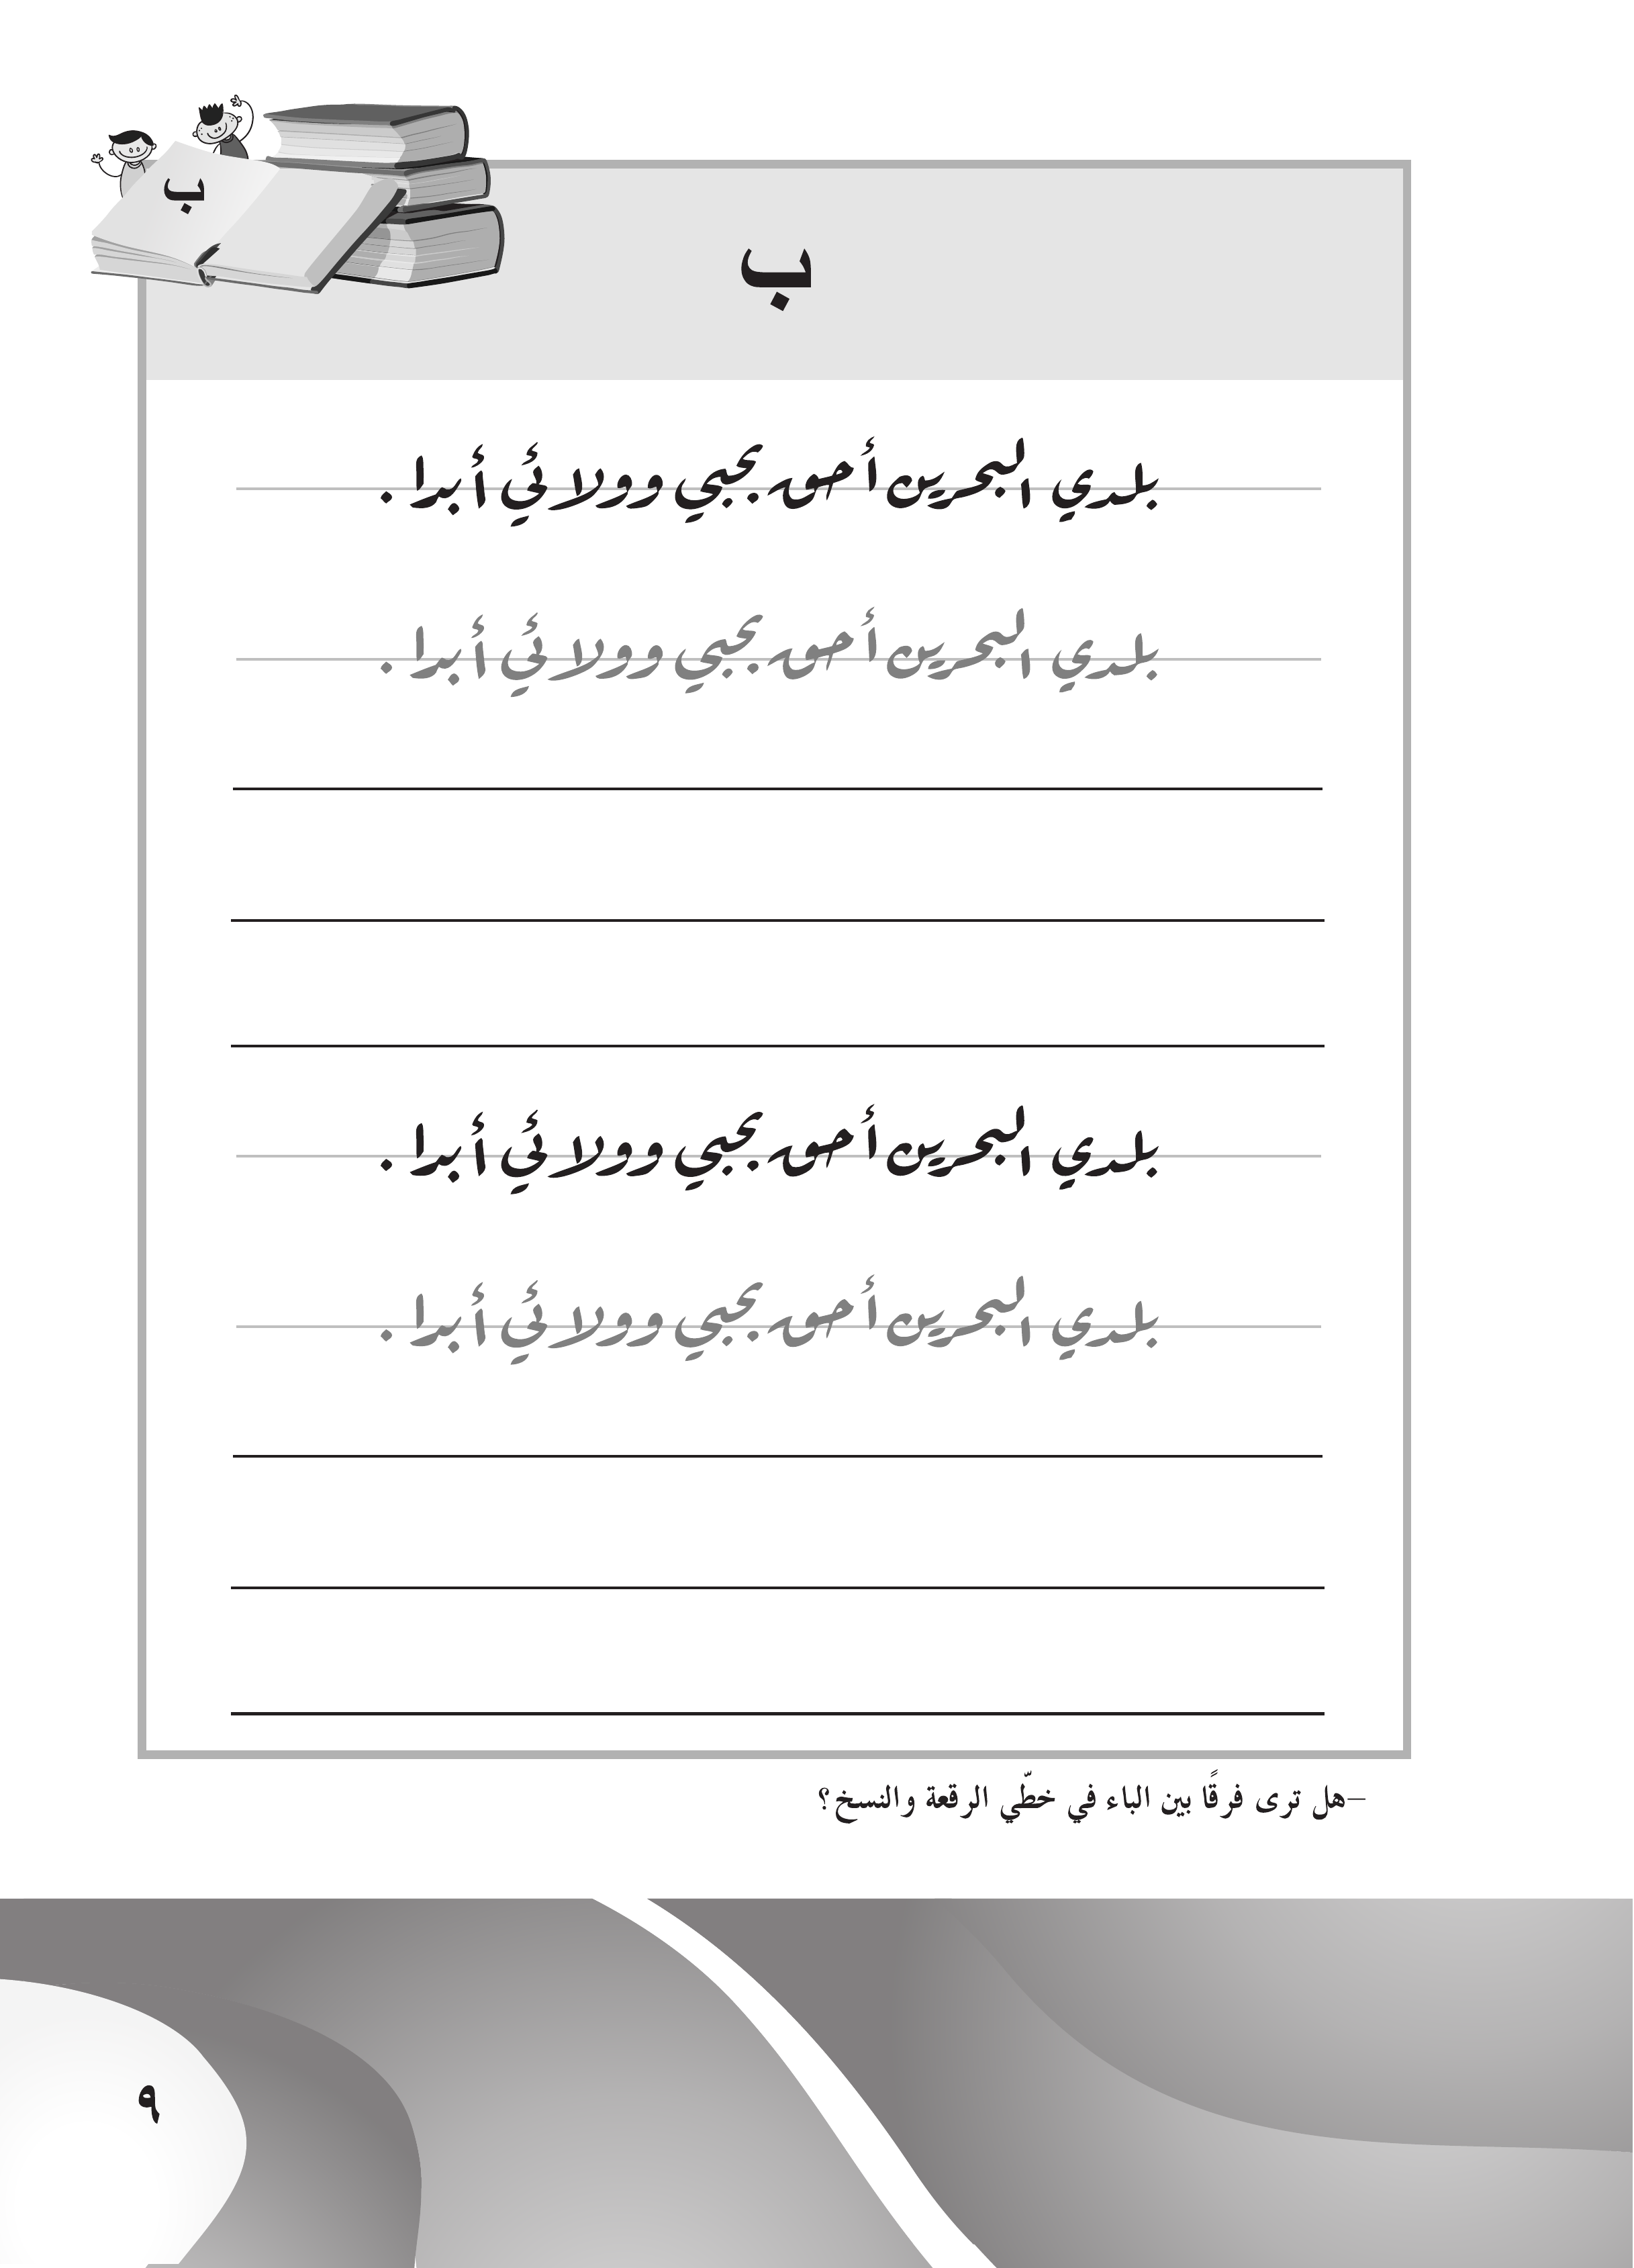 ب
ب
بلدي البحرين أحق بحبي وولائي أبدا .
بلدي البحرين أحق بحبي وولائي أبدا .
بلدي البحرين أحق بحبي وولائي أبدا .
بلدي البحرين أحق بحبي وولائي أبدا .
–هل ترى فرقًا بين الباء في خطّي الرقعة والنسخ؟
٩